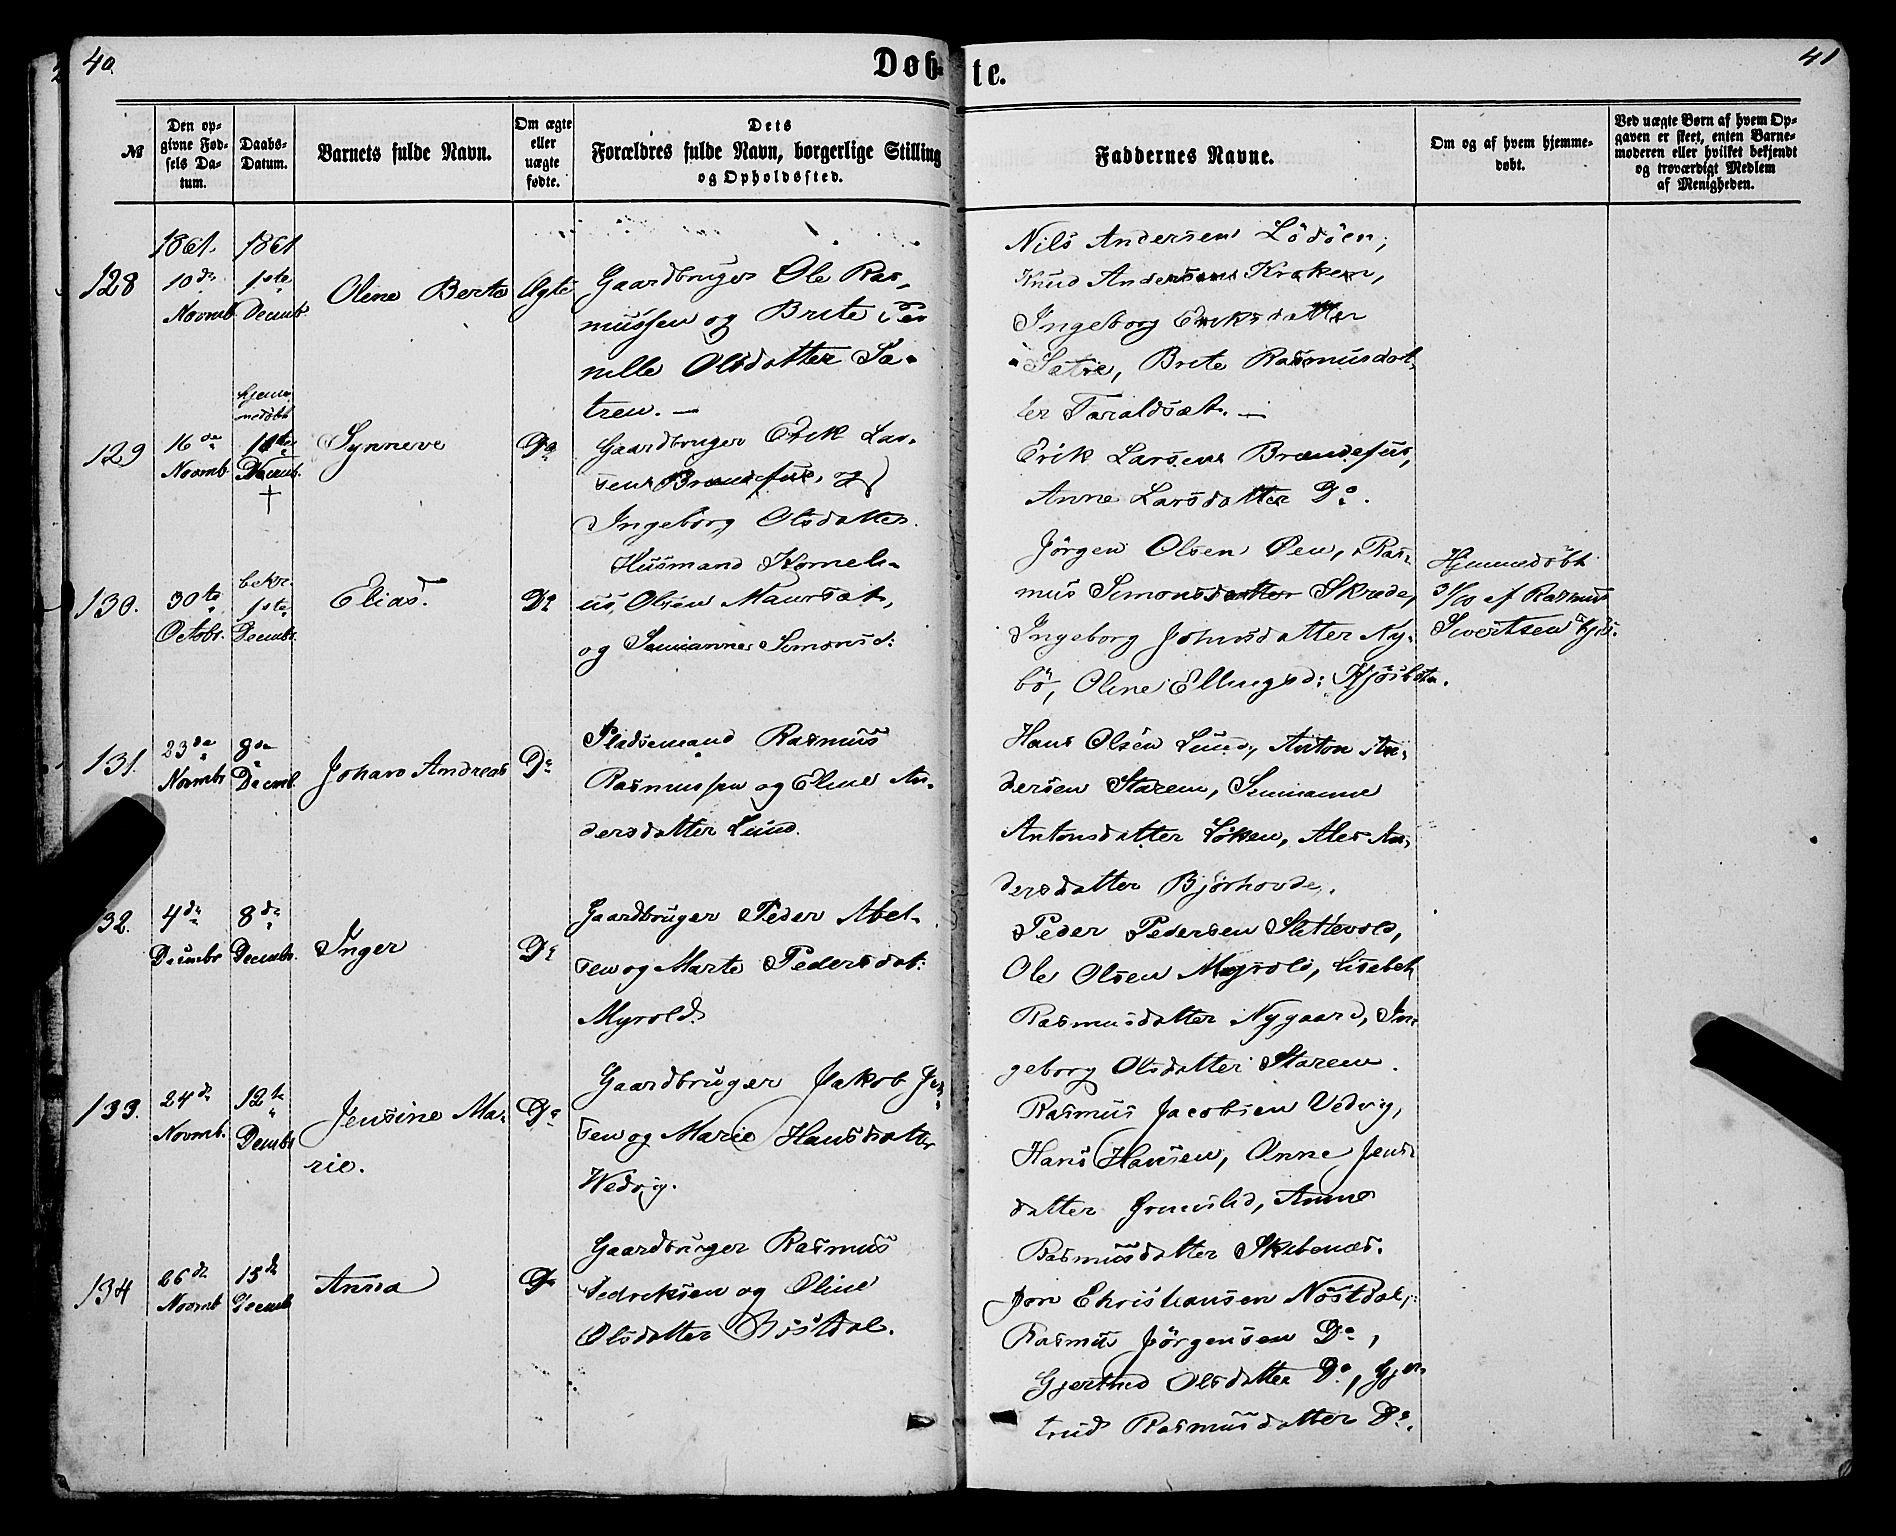 40.
Døb-
te.
41
№
Den op-
givne Fød-
sels Da-
tum.
Daabs-
Datum.
Barnets fulde Navn.
Om ægte
eller
uægte
fødte.
Dets
Forældres fulde Navn, borgerlige Stilling
og Opholdssted.
Faddernes Navne.
Om og af hvem hjemme-
døbt.
Ved uægte Børn af hvem Op-
gaven er skeet, enten Barne-
moderen eller hvilket bekjendt
og troværdigt Medlem
af Menigheden.
1861. 1861
128
10de
Novmb.
1ste
Decmb.
Oline Berte
Ægte
Gaardbruger Ole Ras-
mussen og Brite Per
nille Olsdatter Sæ-
tren. —
Nils Andersen Lödöen,
Knud Andersen Kraken,
Ingeborg Eriksdatter
Sætre, Brite Rasmusdat-
ter Taraldsæt. —
129
16de
Novmb.
hjem-
medöbt
Decmb.
†
Synneve
Do
Gaardbruger Erik Lar-
sen Brandefus, og
Ingeborg Olsdatter.
Erik Larsen Brandefus,
Anne Larsdatter Do.
130.
30te
Octobr.
bekr.
1ste
Decmbr.
Elias.
Do
Husmand Korneli-
us Olsen Maursæt,
og Simianne Simonsd:
Jörgen Olsen Øen, Ras-
mus Simonsdatter Skrede,
Ingeborg Johnsdatter Ny-
bö, Oline Ellingsd:
Hjemmedöbt
31/10 af Rasmus
Sivertsen
131.
23de
Novmbr
8de
Decmb.
Johan Andreas
Do
Pladsemand Rasmus
Rasmussen og Eline An-
dersdatter Lund.
Hans Olsen Lund, Anton An-
dersen Staren, Simianne
Antonsdatter Löken, Ales An-
dersdatter Bjørhovde.
32.
4de
Decmbr
8de
Decmbr.
Inger
Do
Gaardbruger Peder Abel-
sen og Marte Pedersdat:
Myrold.
Peder Pedersen Slettevold,
Ole Olsen Myrold, Lisebet
Rasmusdatter Nygaard, In-
geborg Olsdatter Staren.
133.
24de
Novmb.
12te
Decmbr
Jensine Ma-
rie.
Do
Gaardbruger Jakob Jen-
sen og Marie Hansdatter
Wedvig.
Rasmus Jacobsen Vedvig,
Hans Hansen, Anne Jens-
datter Grimslid, Anne
Rasmusdatter Skibenæs.
134
26de
Novmb
15de
Decmb
Anna
Do
Gaardbruger Rasmus
Fedriksen og Oline
Olsdatter Nöstdal.
Jon Christiansen Nöstdal,
Rasmus Jörgensen Do,
Gjertrud Olsdatter Do, Gjer
trud Rasmusdatter Do.